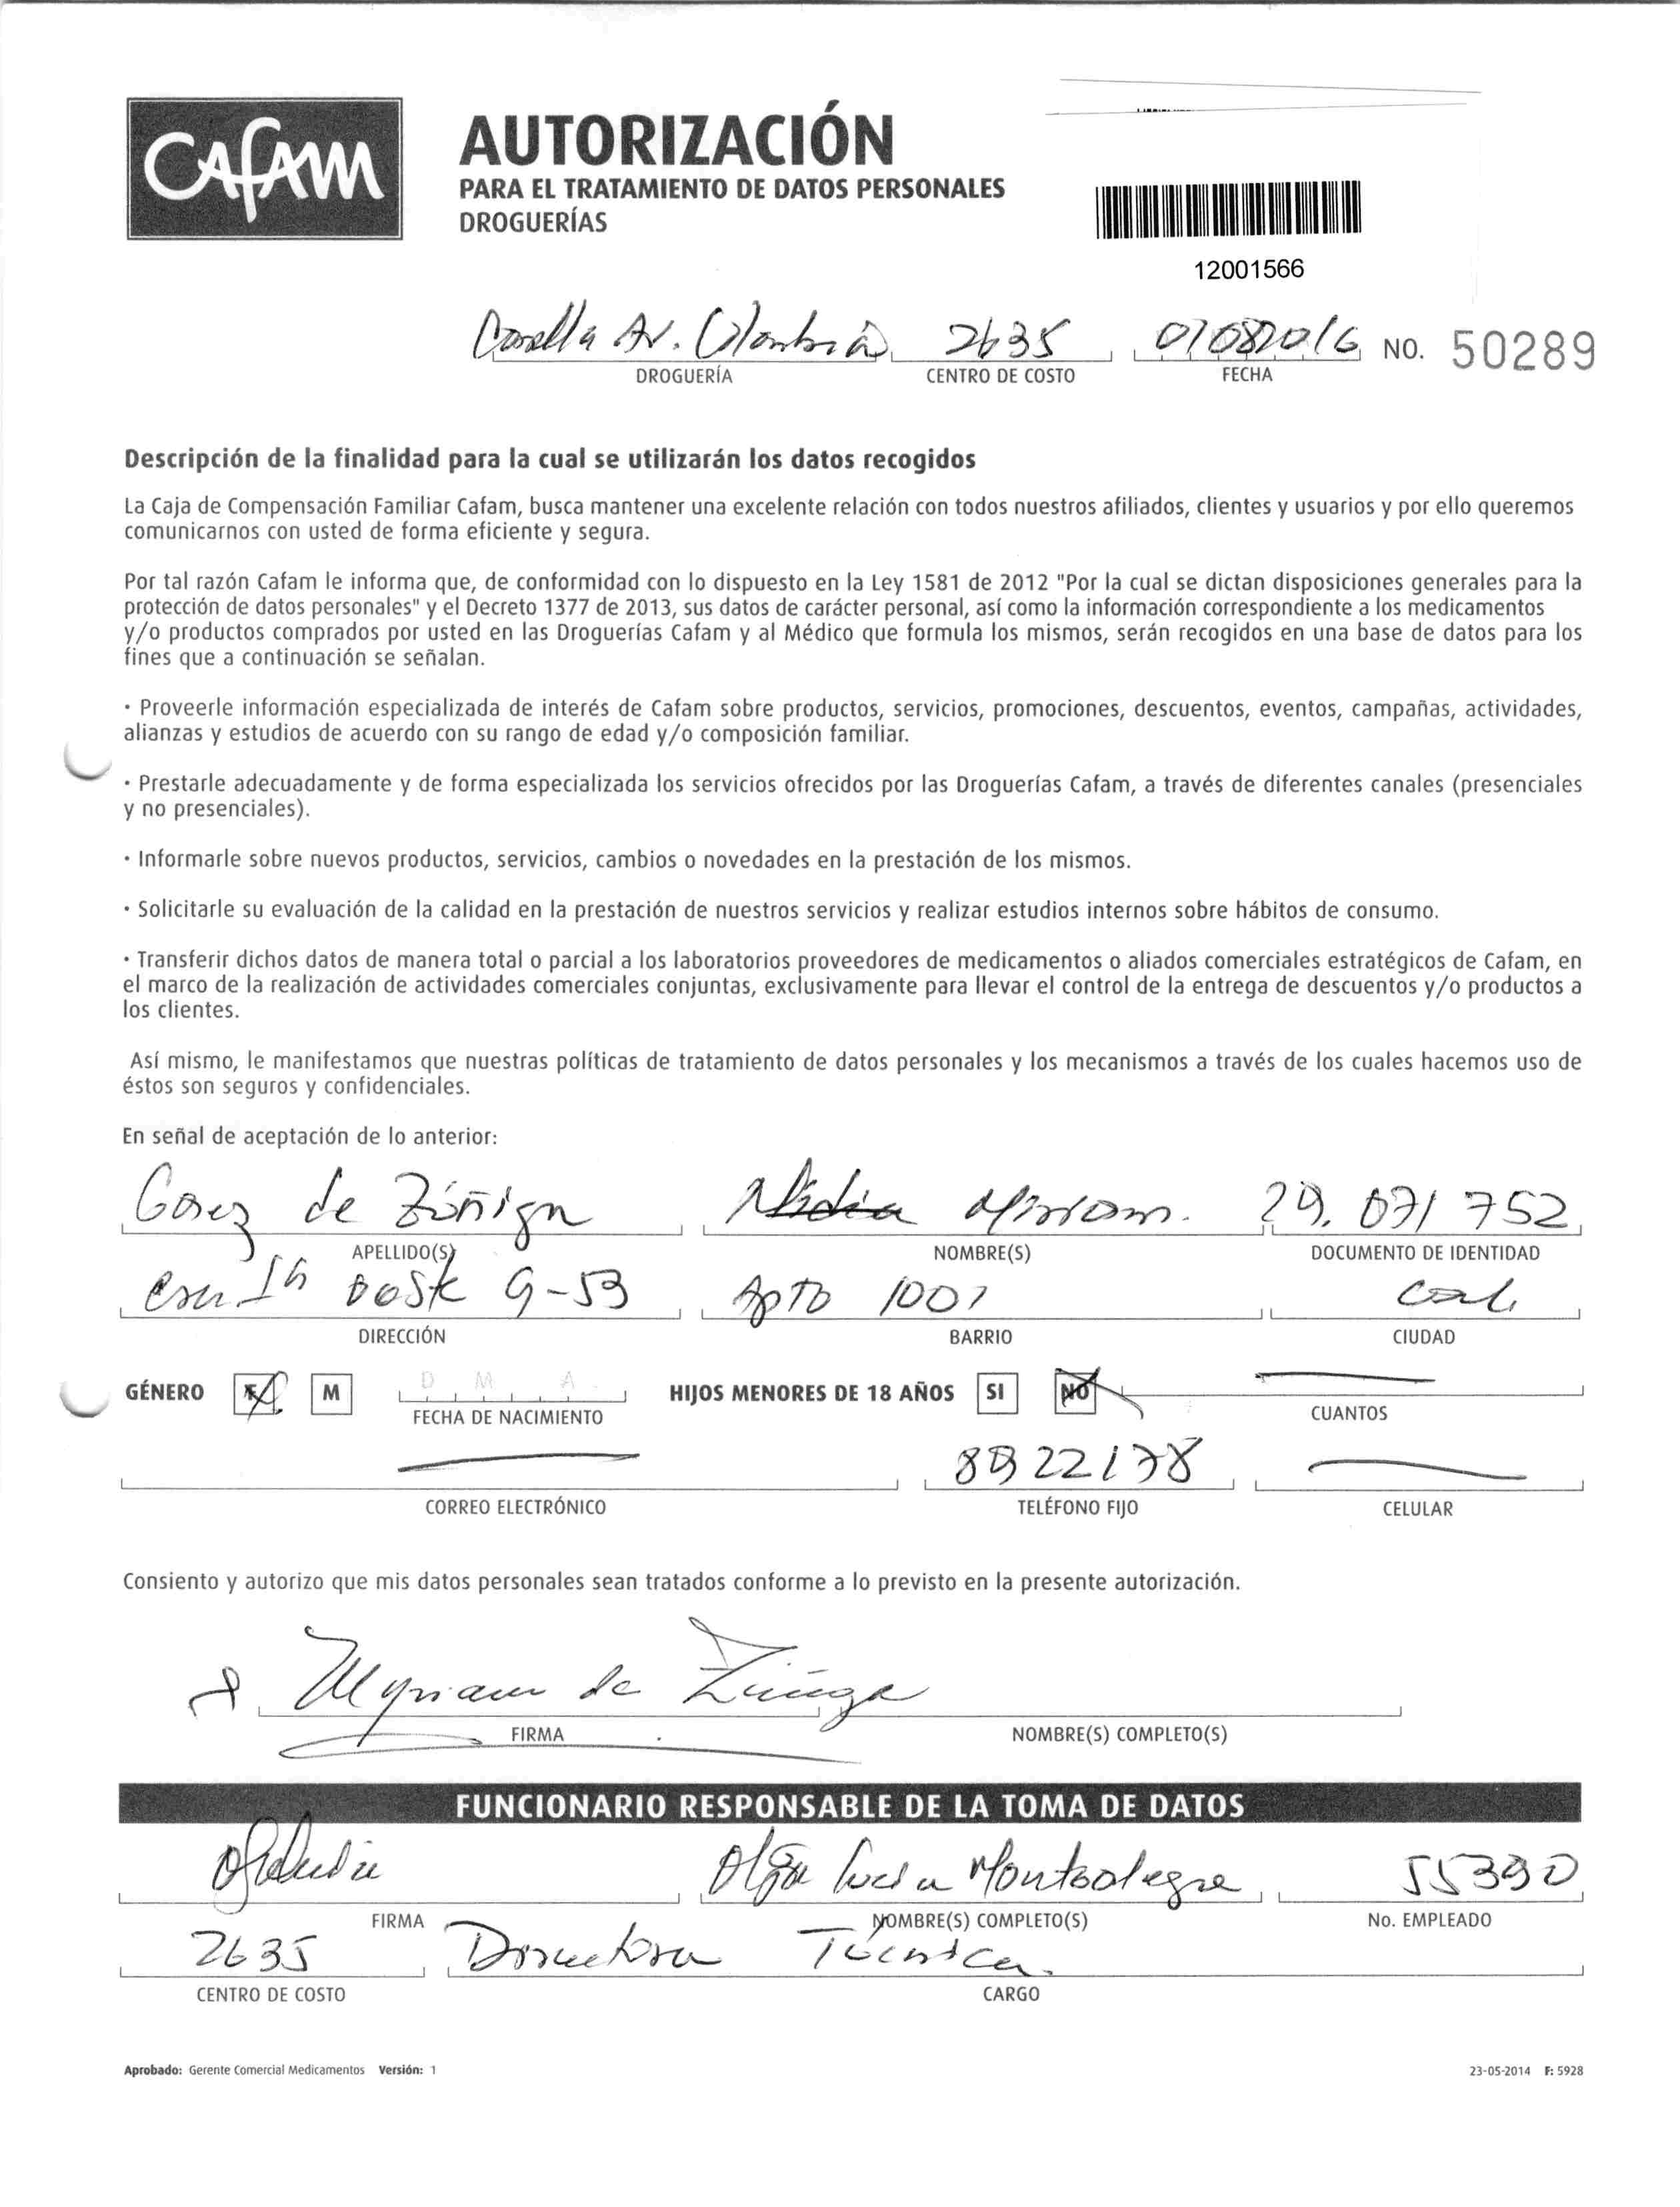 CAFAM
AUTORIZACIÓN
PARA EL TRATAMIENTO DE DATOS PERSONALES
DROGUERÍAS
12001566
Av. Colombia 2635 01082016 NO. 50289
DROGUERÍA CENTRO DE COSTO FECHA
Descripción de la finalidad para la cual se utilizarán los datos recogidos
La Caja de Compensación Familiar Cafam, busca mantener una excelente relación con todos nuestros afiliados, clientes y usuarios y por ello queremos
comunicarnos con usted de forma eficiente y segura.
Por tal razón Cafam le informa que, de conformidad con lo dispuesto en la Ley 1581 de 2012 "Por la cual se dictan disposiciones generales para la
protección de datos personales" y el Decreto 1377 de 2013, sus datos de carácter personal, así como la información correspondiente a los medicamentos
y/o productos comprados por usted en las Droguerías Cafam y al Médico que formula los mismos, serán recogidos en una base de datos para los
fines que a continuación se señalan.
· Proveerle información especializada de interés de Cafam sobre productos, servicios, promociones, descuentos, eventos, campañas, actividades,
alianzas y estudios de acuerdo con su rango de edad y/o composición familiar.
· Prestarle adecuadamente y de forma especializada los servicios ofrecidos por las Droguerías Cafam, a través de diferentes canales (presenciales
y no presenciales).
· Informarle sobre nuevos productos, servicios, cambios o novedades en la prestación de los mismos.
· Solicitarle su evaluación de la calidad en la prestación de nuestros servicios y realizar estudios internos sobre hábitos de consumo.
· Transferir dichos datos de manera total o parcial a los laboratorios proveedores de medicamentos o aliados comerciales estratégicos de Cafam, en
el marco de la realización de actividades comerciales conjuntas, exclusivamente para llevar el control de la entrega de descuentos y/o productos a
los clientes.
Así mismo, le manifestamos que nuestras políticas de tratamiento de datos personales y los mecanismos a través de los cuales hacemos uso de
éstos son seguros y confidenciales.
En señal de aceptación de lo anterior:
de Zúñiga Miriam. 29.071752
APELLIDO(S) NOMBRE(S) DOCUMENTO DE IDENTIDAD
9-53 Apto 1001 Cali
DIRECCIÓN BARRIO CIUDAD
GÉNERO F M D M A HIJOS MENORES DE 18 AÑOS SI NO
FECHA DE NACIMIENTO CUANTOS
8922178
CORREO ELECTRÓNICO TELÉFONO FIJO CELULAR
Consiento y autorizo que mis datos personales sean tratados conforme a lo previsto en la presente autorización.
Myriam de Zúñiga
FIRMA NOMBRE(S) COMPLETO(S)
FUNCIONARIO RESPONSABLE DE LA TOMA DE DATOS
Olga Lucia Montealegre 55390
FIRMA NOMBRE(S) COMPLETO(S) No. EMPLEADO
2635 Directora Técnica.
CENTRO DE COSTO CARGO
Aprobado: Gerente Comercial Medicamentos Versión: 1 23-05-2014 F: 5928